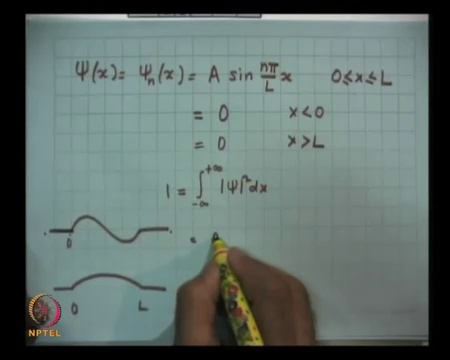 Ψ(x) = Ψn(x) = A sin nπ/L x 0≤x≤L
= 0 x<0
= 0 x>L
1 = ∫_{-∞}^{+∞} |Ψ|² dx
= A
0
0 L
NPTEL